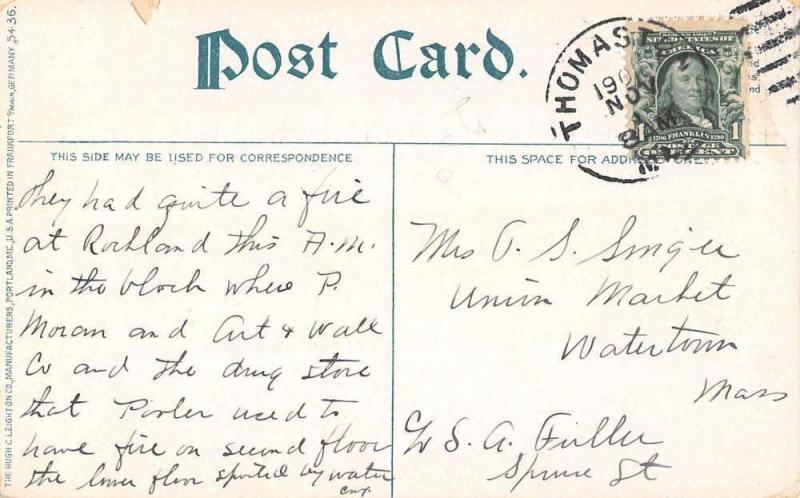 Post Card.
THOMASTON
190
NOV 2
8 AM
ME
SERIES 1902
UNITED STATES OF AMERICA
1 1706 FRANKLIN 1790 1
POSTAGE
ONE CENT
THIS SIDE MAY BE USED FOR CORRESPONDENCE
THIS SPACE FOR ADDRESS ONLY.
They had quite a fire
at Rockland this A.M.
in the block where P.
Moran and Art & Wall
Co and the drug store
that Porter used to
have fire on second floor
the lower floor spoiled by water
Mrs O. S. Singer
Union Market
Watertown
Mass
c/o S. A. Fuller
Spruce St
THE HUGH C. LEIGHTON CO., MANUFACTURERS, PORTLAND, ME., U.S.A. PRINTED IN FRANKFORT o/MAIN, GERMANY 5436.